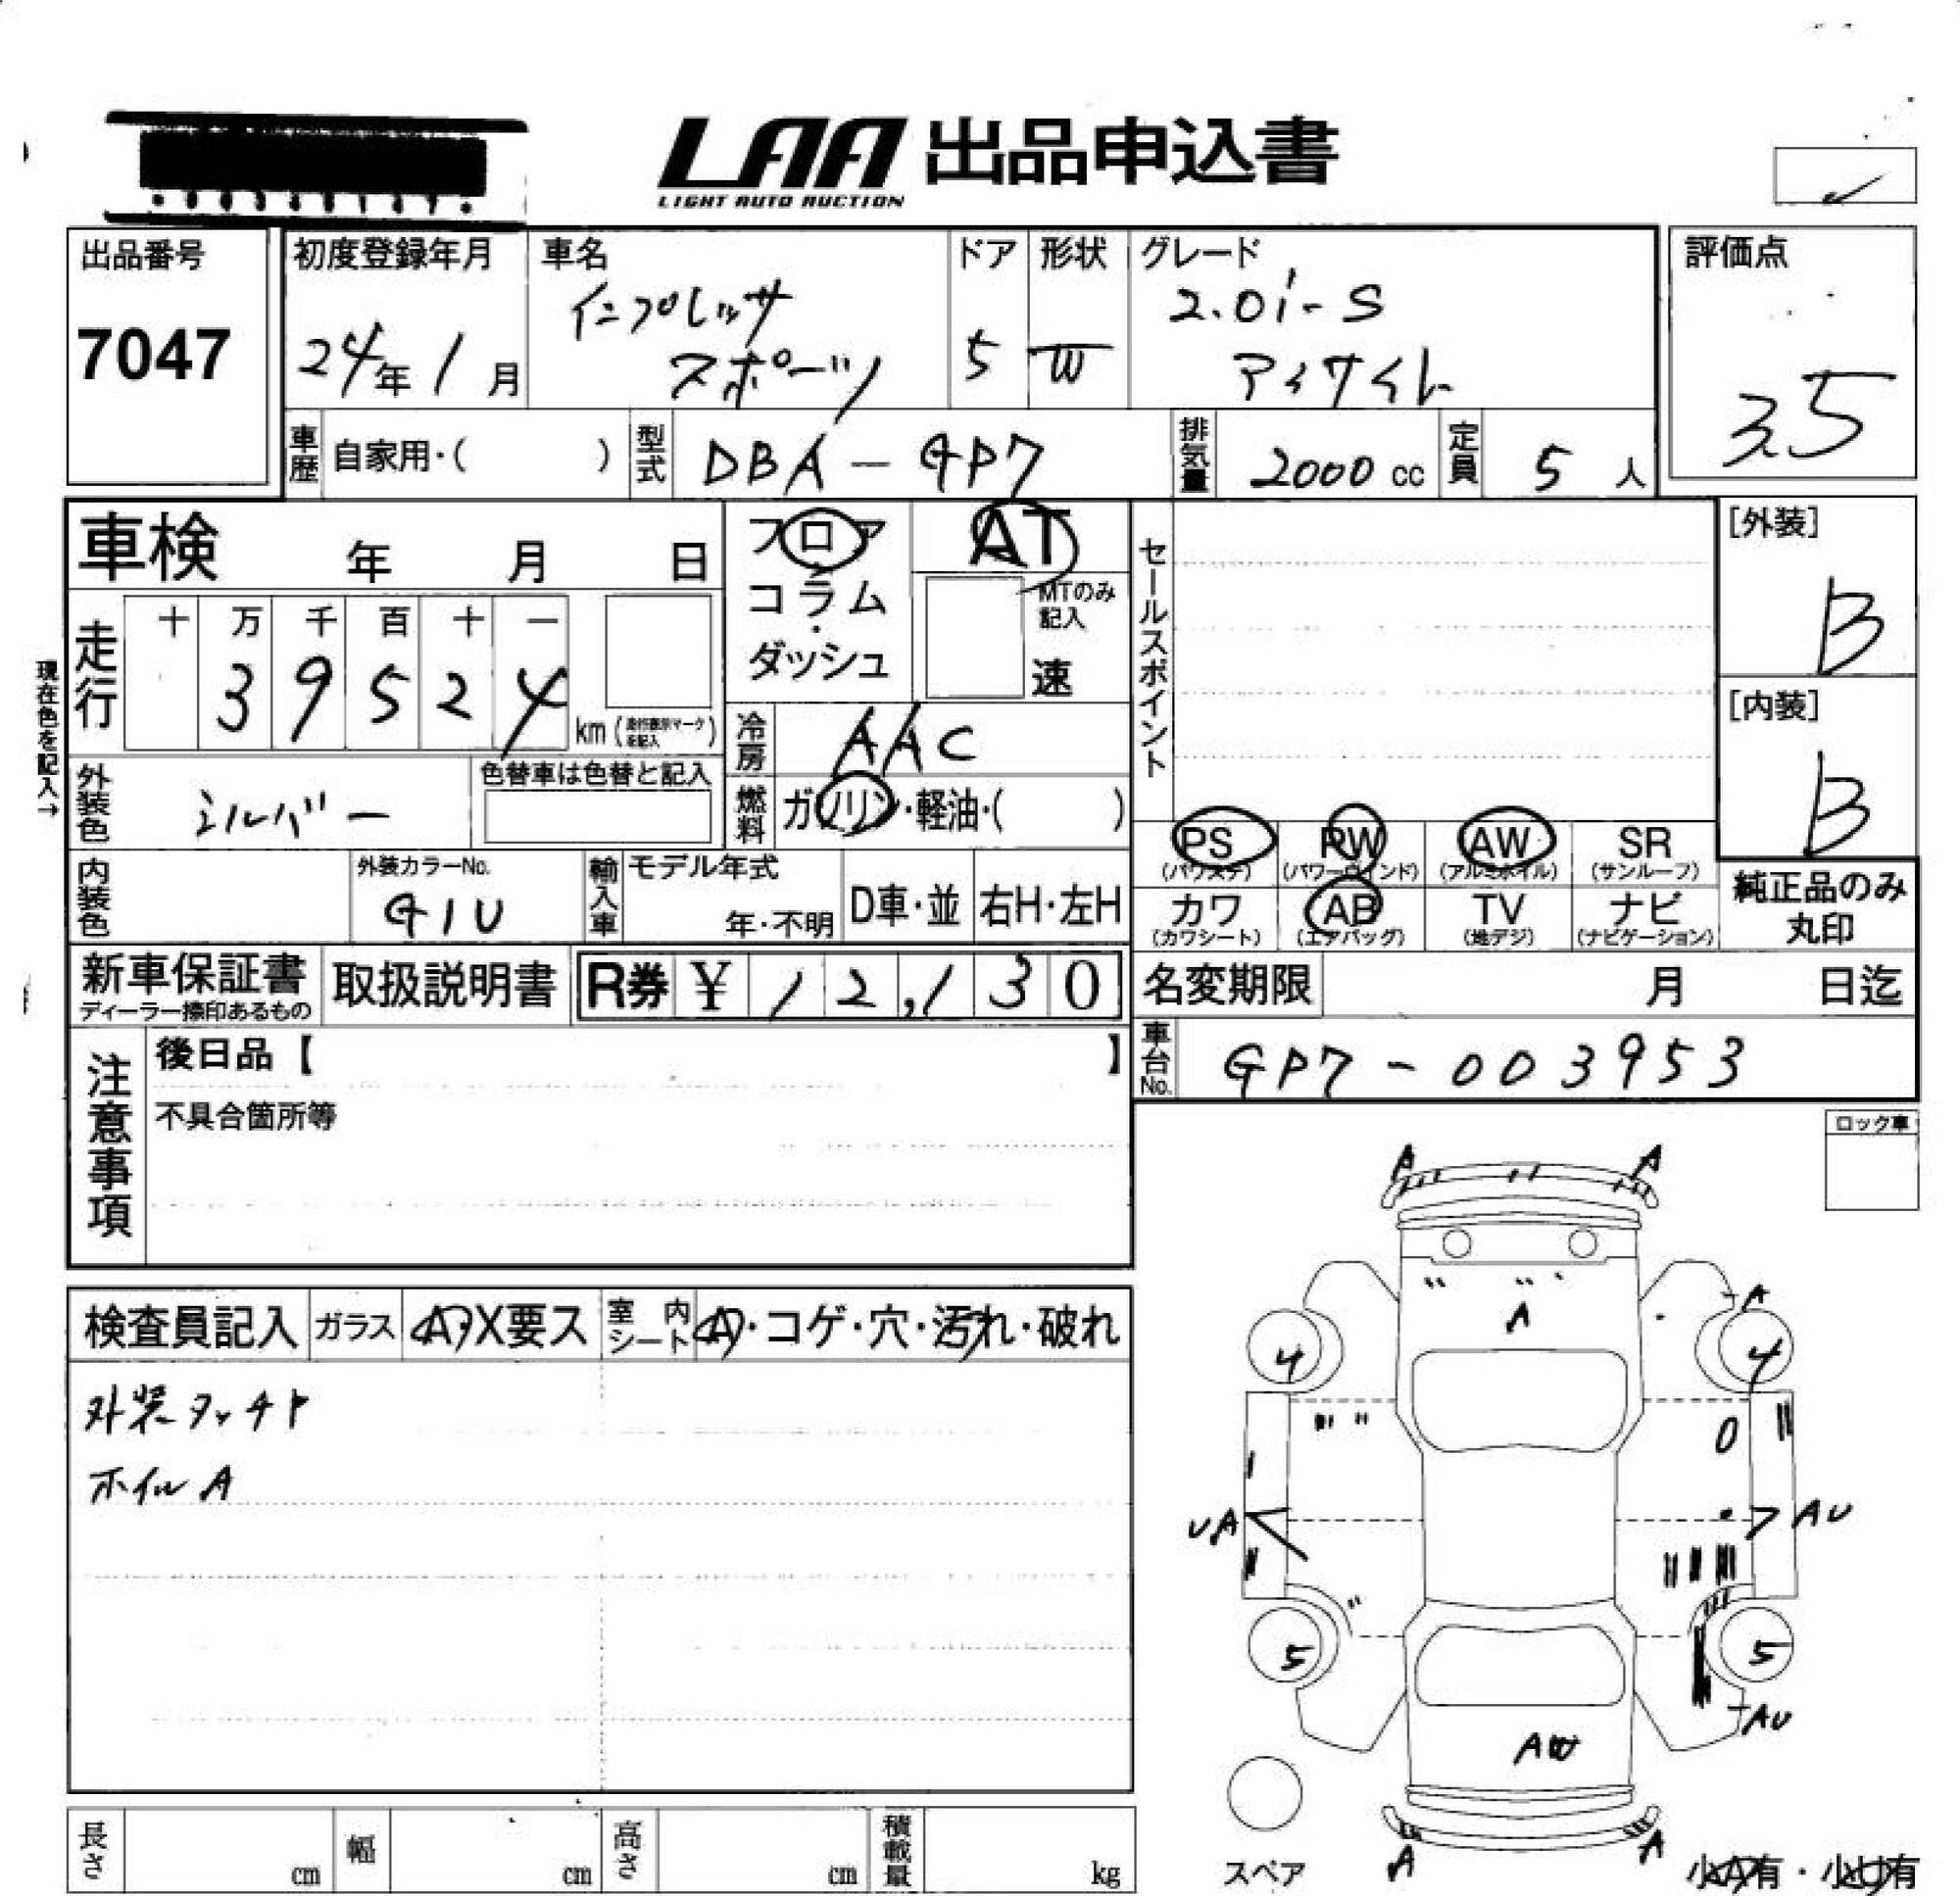 LAA 出品申込書
LIGHT AUTO AUCTION
出品番号
7047
初度登録年月
24年 1月
車名
インプレッサ
スポーツ
ドア
5
形状
W
グレード
2.0i-S
アイサイト
評価点
3.5
車歴 自家用・( )
型式 DBA-GP7
排気量 2000 cc
定員 5 人
車検 年 月 日
フロア
コラム
・
ダッシュ
AT
MTのみ
記入
速
セールスポイント
[外装]
B
[内装]
B
現在色を記入→
走行
十 万 千 百 十 一
3 9 5 2 4
km (走行表示マークを記入)
冷房 AAC
外装色 シルバー
色替車は色替と記入
燃料 ガソリン・軽油・( )
PS
(パワステ)
PW
(パワーウインド)
AW
(アルミホイル)
SR
(サンルーフ)
カワ
(カワシート)
AB
(エアバッグ)
TV
(地デジ)
ナビ
(ナビゲーション)
純正品のみ
丸印
内装色
外装カラーNo.
G1U
輸入車
モデル年式
年・不明
D車・並
右H・左H
新車保証書
ディーラー捺印あるもの
取扱説明書
R券 ¥ 12,130
名変期限 月 日迄
車台No. GP7-003953
注意事項
後日品【 】
不具合箇所等
ロック車
検査員記入
ガラス
A・X要ス
室内シート
A・コゲ・穴・汚れ・破れ
外装タッチト
ホイルA
A A
A
A
4 4
O
UA
AU
5 5
AU
AW
A A
スペア
小A有・小U有
長さ cm
幅 cm
高さ cm
積載量 kg